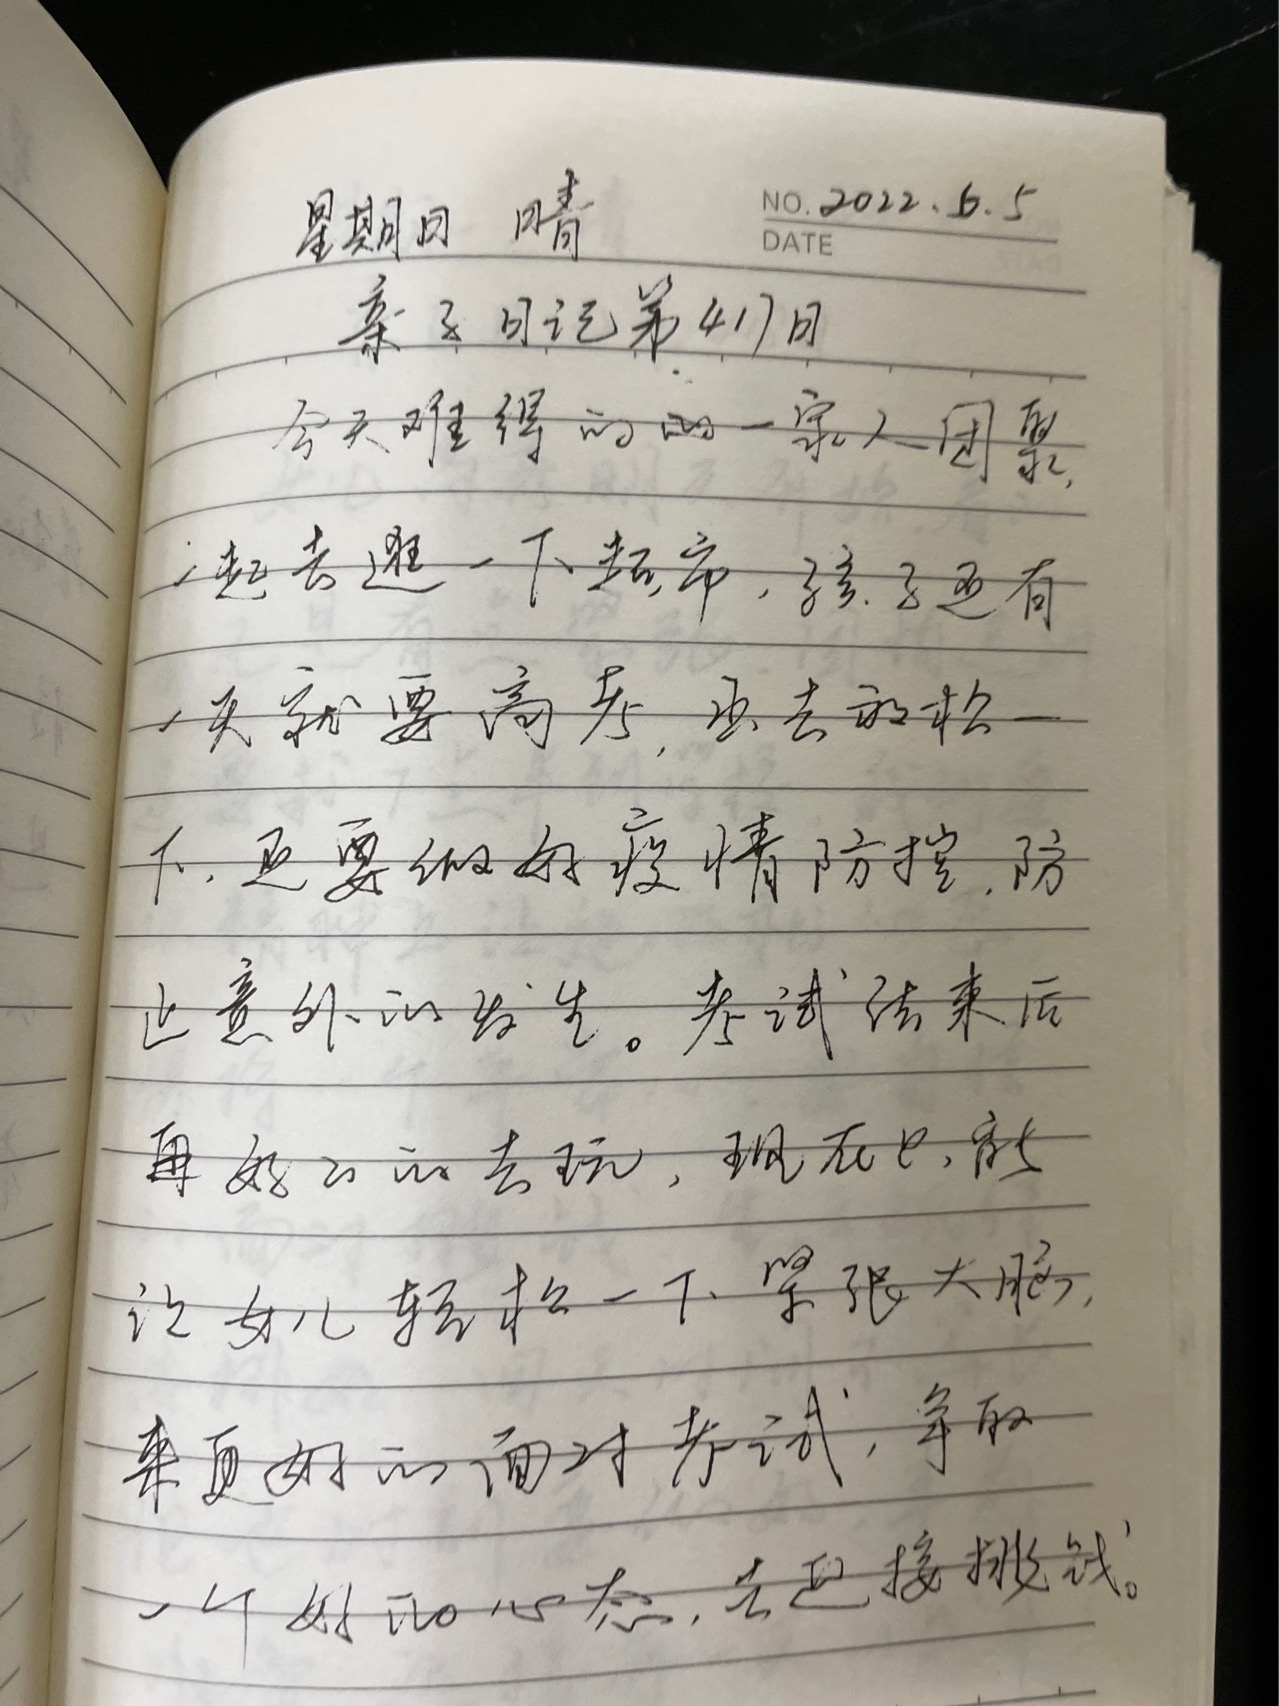 星期日 晴
NO. 2022.6.5
DATE
亲子日记第417日
今天难得的的一家人团聚,
一起去逛一下超市,孩子还有
一天就要高考,还去放松一
下,还要做好疫情防控,防
止意外的发生。考试结束后
再好好的去玩,现在只能
让女儿轻松一下紧张大脑,
来更好的面对考试,争取
一个好的心态,去迎接挑战。